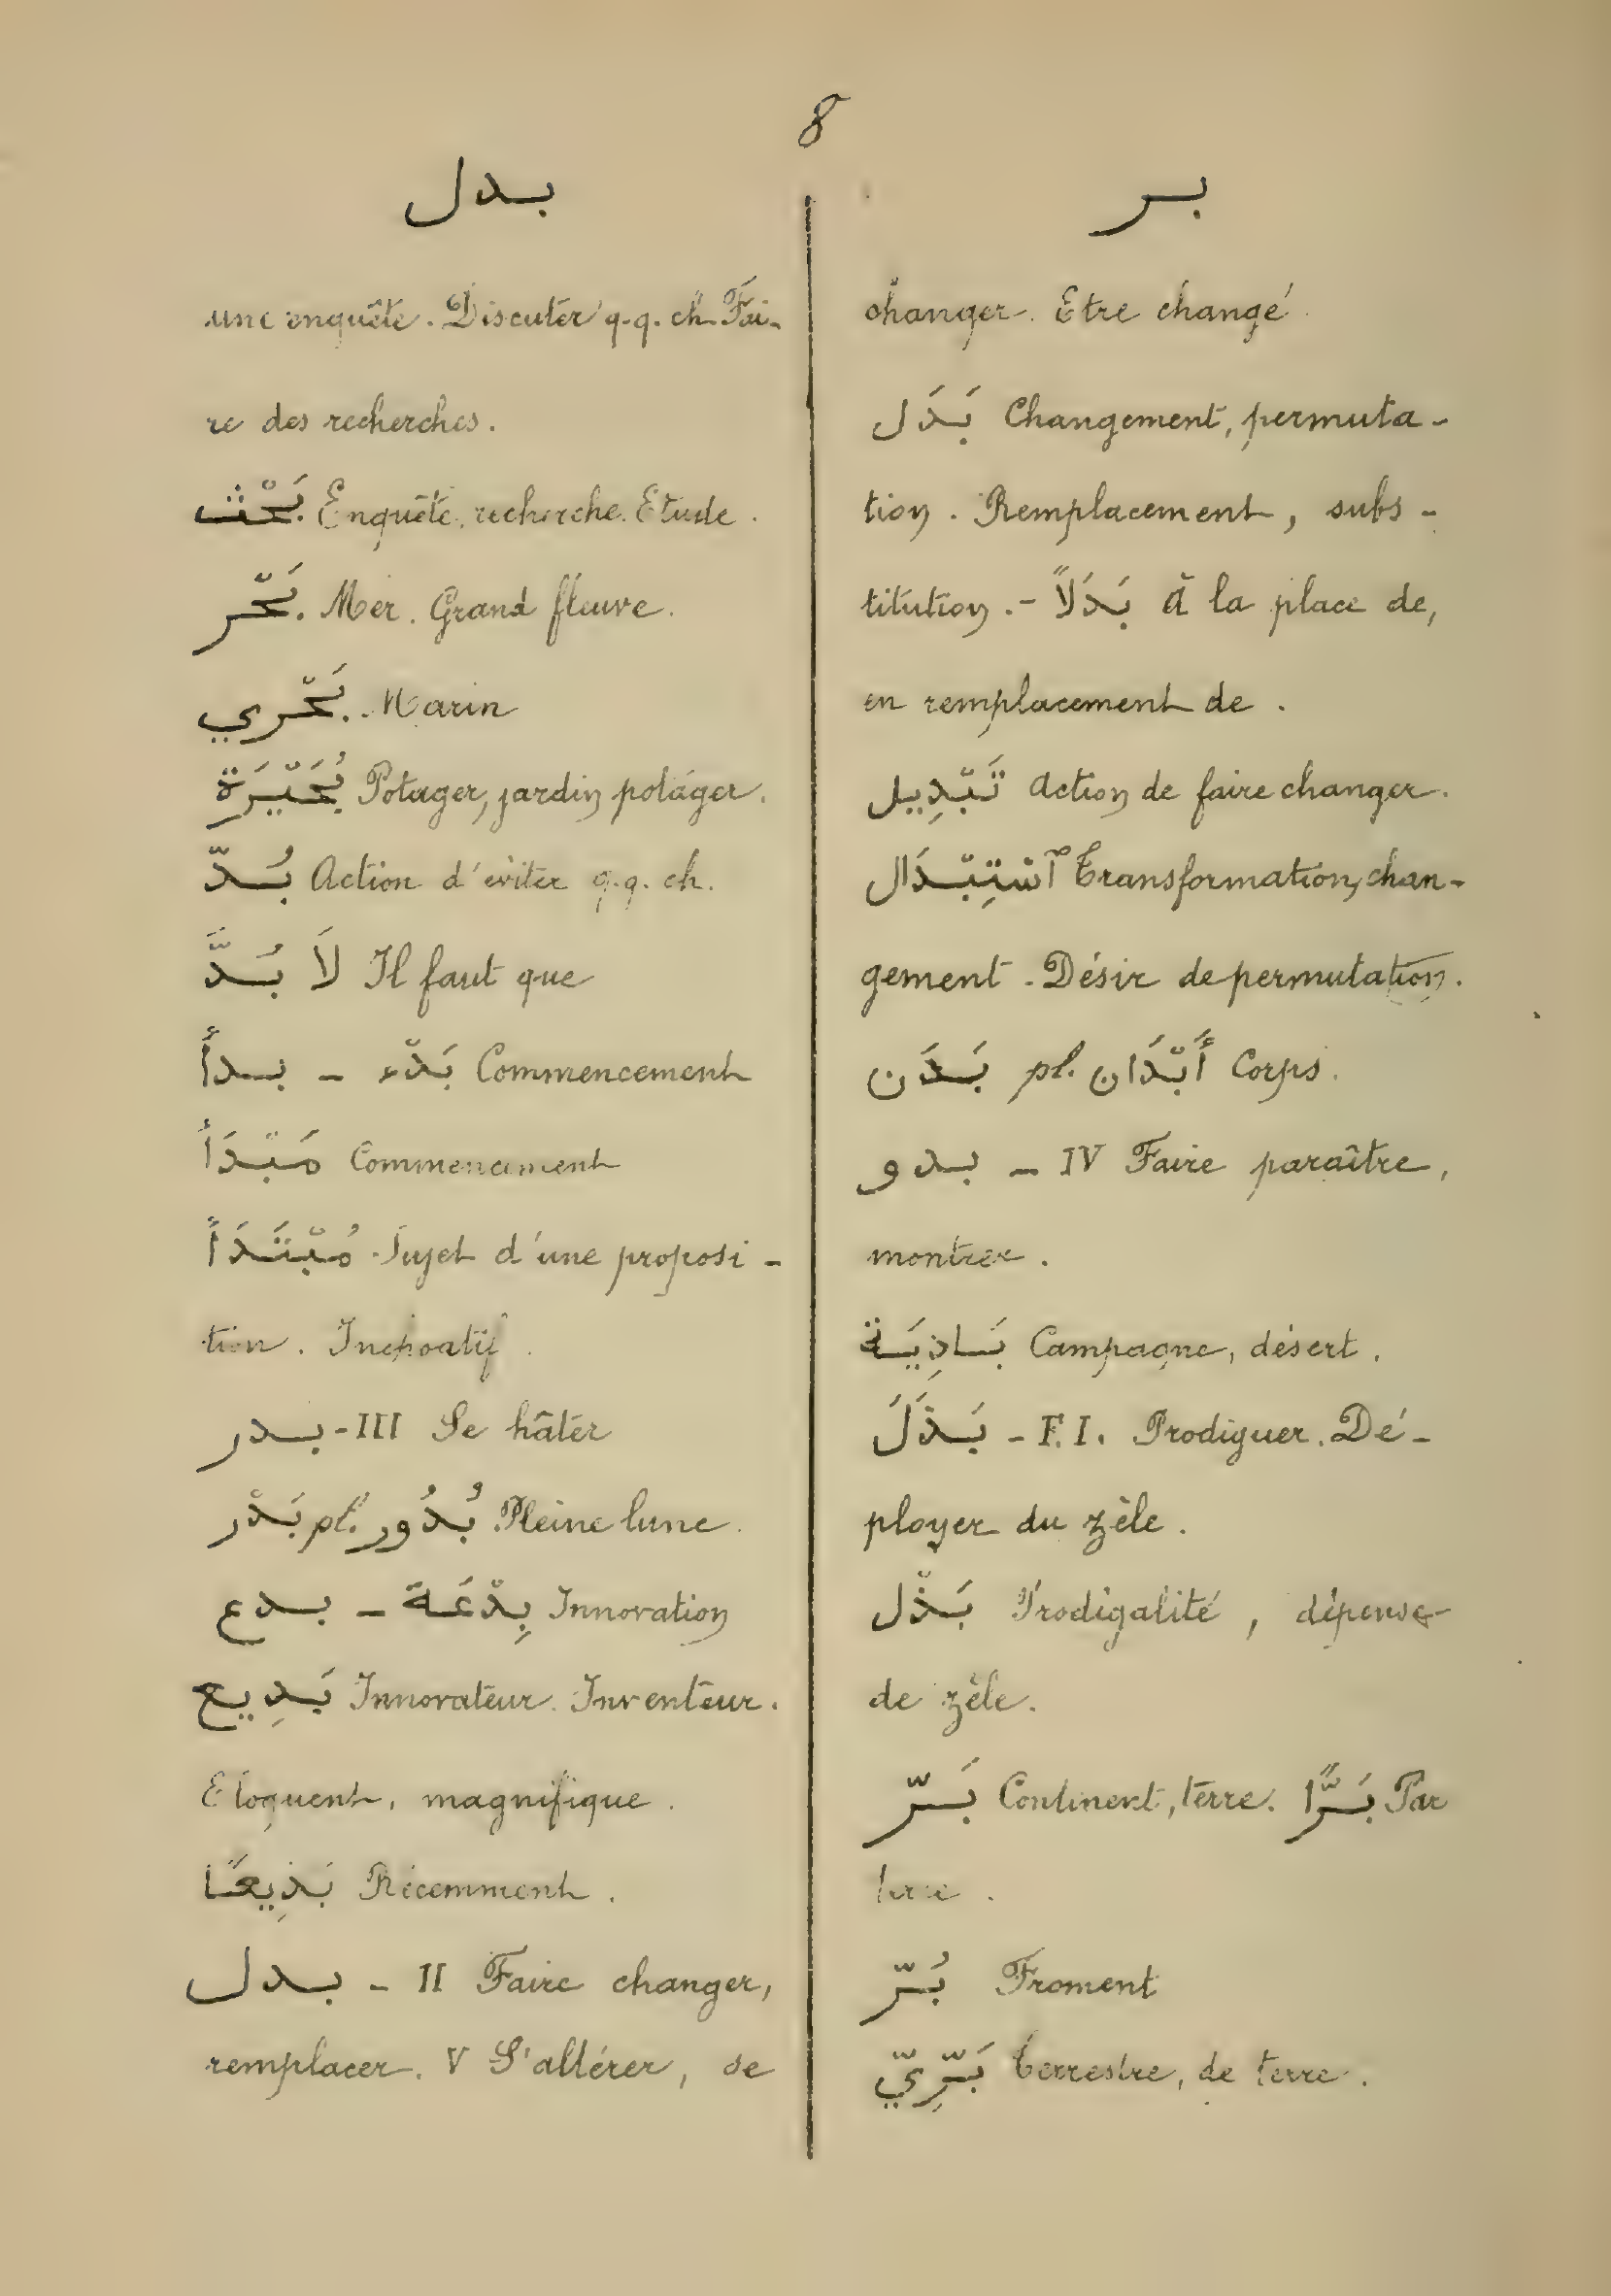 8
بدل
une enquête. Discuter q.q. ch. Fai-
re des recherches.
بَحْث Enquête, recherche. Etude.
بَحْر Mer. Grand fleuve.
بَحْري Marin
بُحَيْرَة Potager, jardin potager.
بُدّ Action d'éviter q.q. ch.
لَا بُدَّ Il faut que
بدأ - بَدْء Commencement
مَبْدَأ Commencement
مُبْتَدَأ Sujet d'une proposi-
tion. Inchoatif.
بدر - III Se hâter
بَدْر pl. بُدُور Pleine lune.
بدع - بِدْعَة Innovation
بَدِيع Innovateur. Inventeur.
Eloquent, magnifique.
بَدِيعًا Récemment.
بدل - II Faire changer,
remplacer. V S'altérer, se
بر
changer. Etre changé.
بَدَل Changement, permuta-
tion. Remplacement, subs-
titution. - بَدَلاً à la place de,
en remplacement de.
تَبْدِيل Action de faire changer.
ٱسْتِبْدَال Transformation, chan-
gement. Désir de permutation.
بَدَن pl. أَبْدَان Corps.
بدو - IV Faire paraître,
montrer.
بَادِيَة Campagne, désert.
بَذَلَ - F. I. Prodiguer. Dé-
ployer du zèle.
بَذْل Prodigalité, dépense
de zèle.
بَرّ Continent, terre. بَرًّا Par
terre.
بُرّ Froment
بَرِّيّ Terrestre, de terre.